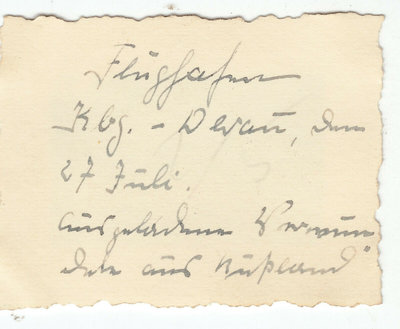 Flughafen
Kbg. - Devau, den
27 Juli.
ausgeladene Verwun
dete aus Rußland"